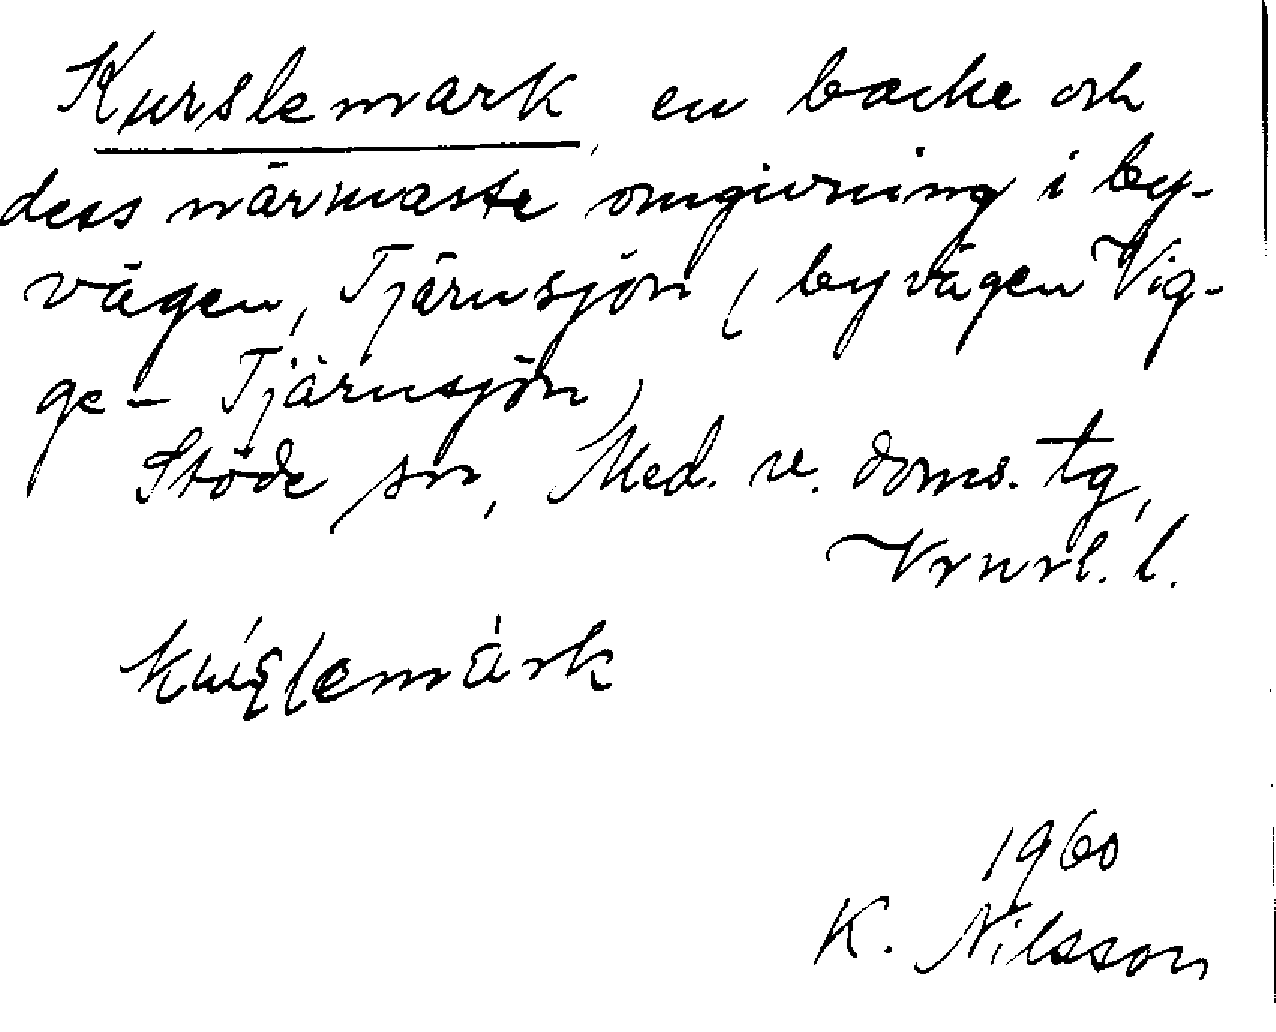 Kurslemark, en backe och
dess närmaste omgivning i by-
vägen, Tjärnsjön (byvägen Vig-
ge - Tjärnsjön)
Stöde sn, Med. v. doms. tg,
Vrnrl. l.
1960
K. Nilsson